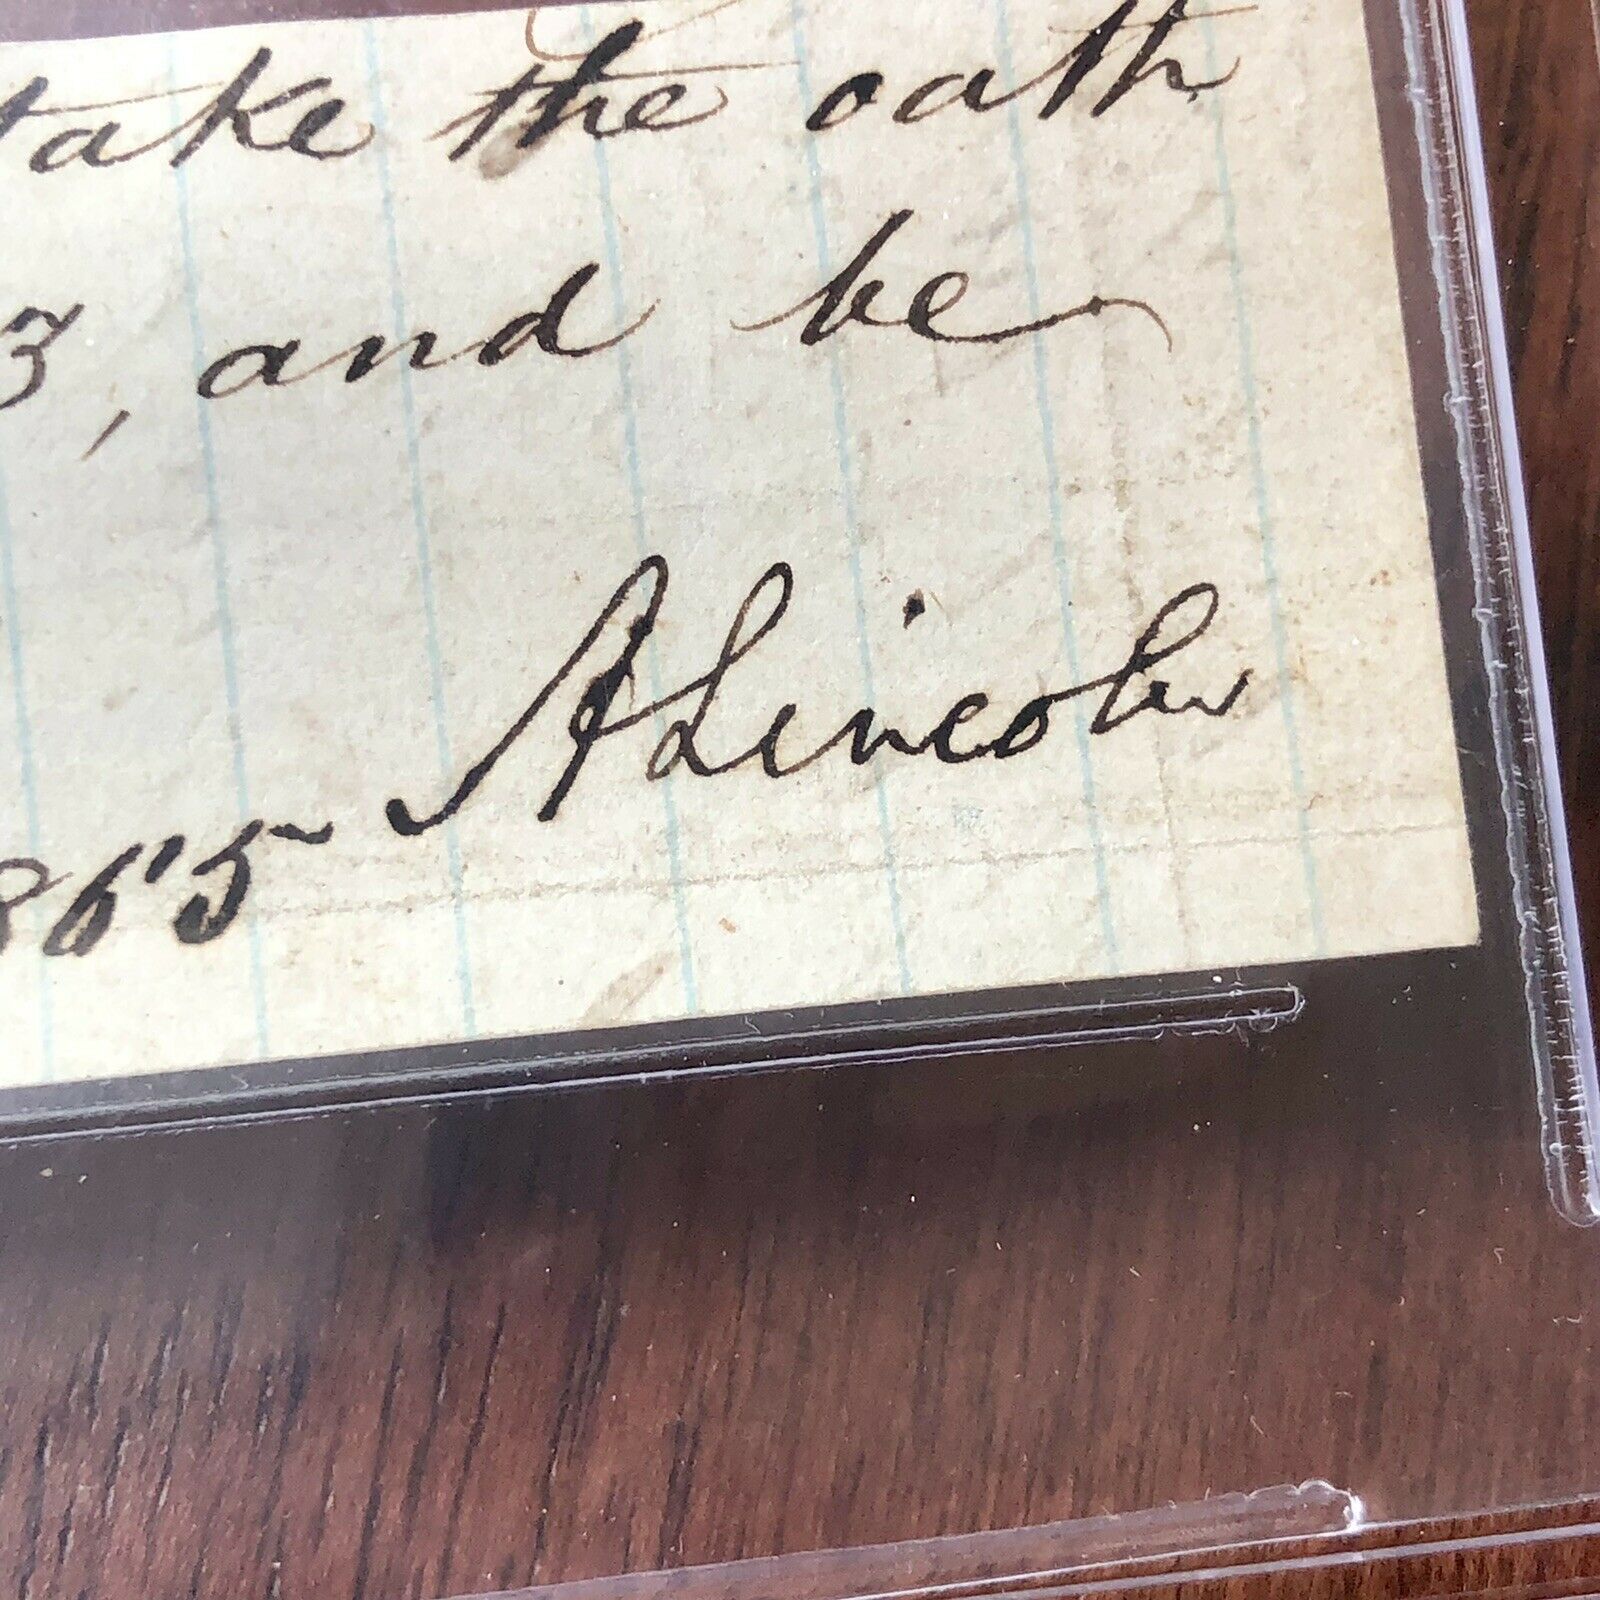 take the oath
3, and be
A Lincoln
865